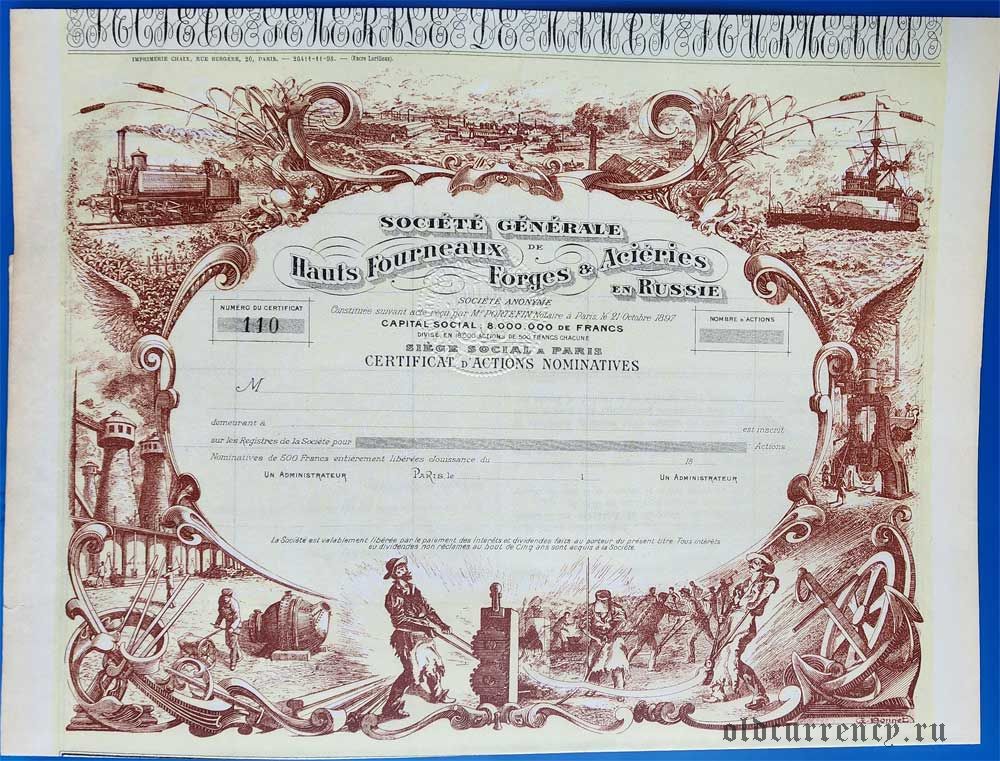 SOCIÉTÉ GÉNÉRALE DE HAUTS FOURNEAUX
IMPRIMERIE CHAIX, RUE BERGÈRE, 20, PARIS. — 20411-11-98. — (Encre Lorilleux).
SOCIÉTÉ GÉNÉRALE
DE
Hauts Fourneaux Forges & Aciéries
EN RUSSIE
SOCIÉTÉ ANONYME
Constituée suivant acte reçu par Me PORTEFIN Notaire à Paris, le 21 Octobre 1897
CAPITAL SOCIAL : 8.000.000 DE FRANCS
DIVISÉ EN 16.000 ACTIONS DE 500 FRANCS CHACUNE
SIÈGE SOCIAL A PARIS
CERTIFICAT D'ACTIONS NOMINATIVES
NUMÉRO DU CERTIFICAT
110
NOMBRE D'ACTIONS
M
demeurant à est inscrit
sur les Registres de la Société pour Actions
Nominatives de 500 Francs entièrement libérées Jouissance du 18
UN ADMINISTRATEUR PARIS, le 1 UN ADMINISTRATEUR
La Société est valablement libérée par le paiement des intérêts et dividendes faits au porteur du présent titre. Tous intérêts
ou dividendes non réclamés au bout de Cinq ans sont acquis à la Société.
Bonnet
oldcurrency.ru